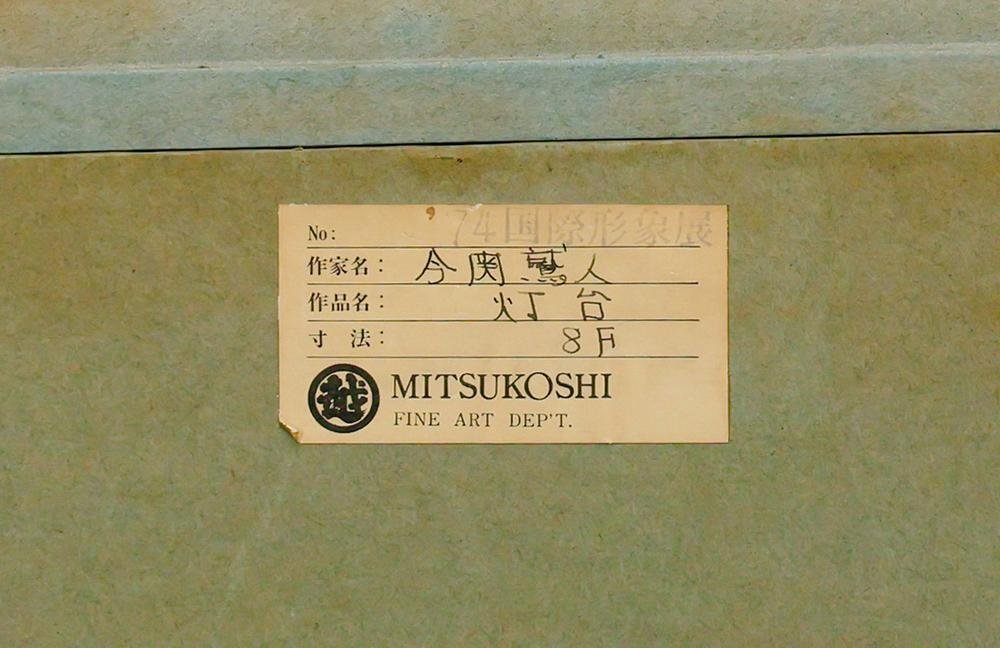 No: '74国際形象展
作家名: 今関鷲人
作品名: 灯台
寸 法: 8F
越 MITSUKOSHI
FINE ART DEP'T.